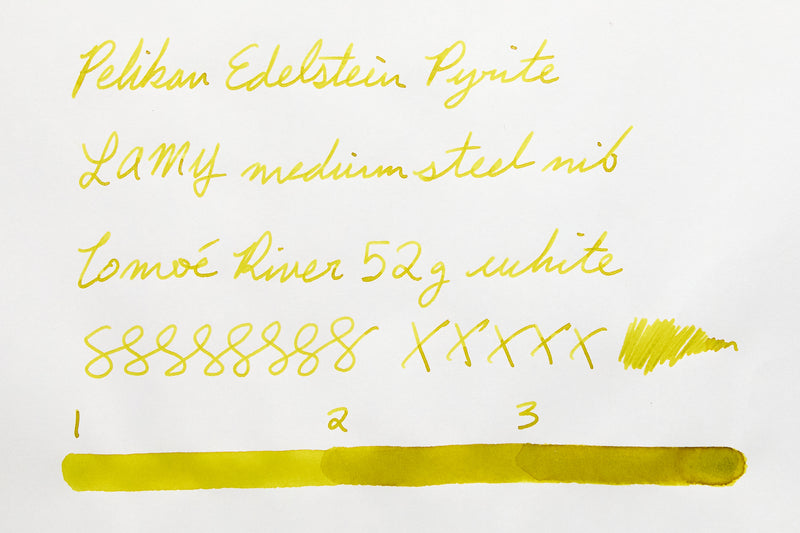 Pelikan Edelstein Pyrite
LAMY medium steel nib
Tomoé River 52g white
XXXXX
1 2 3